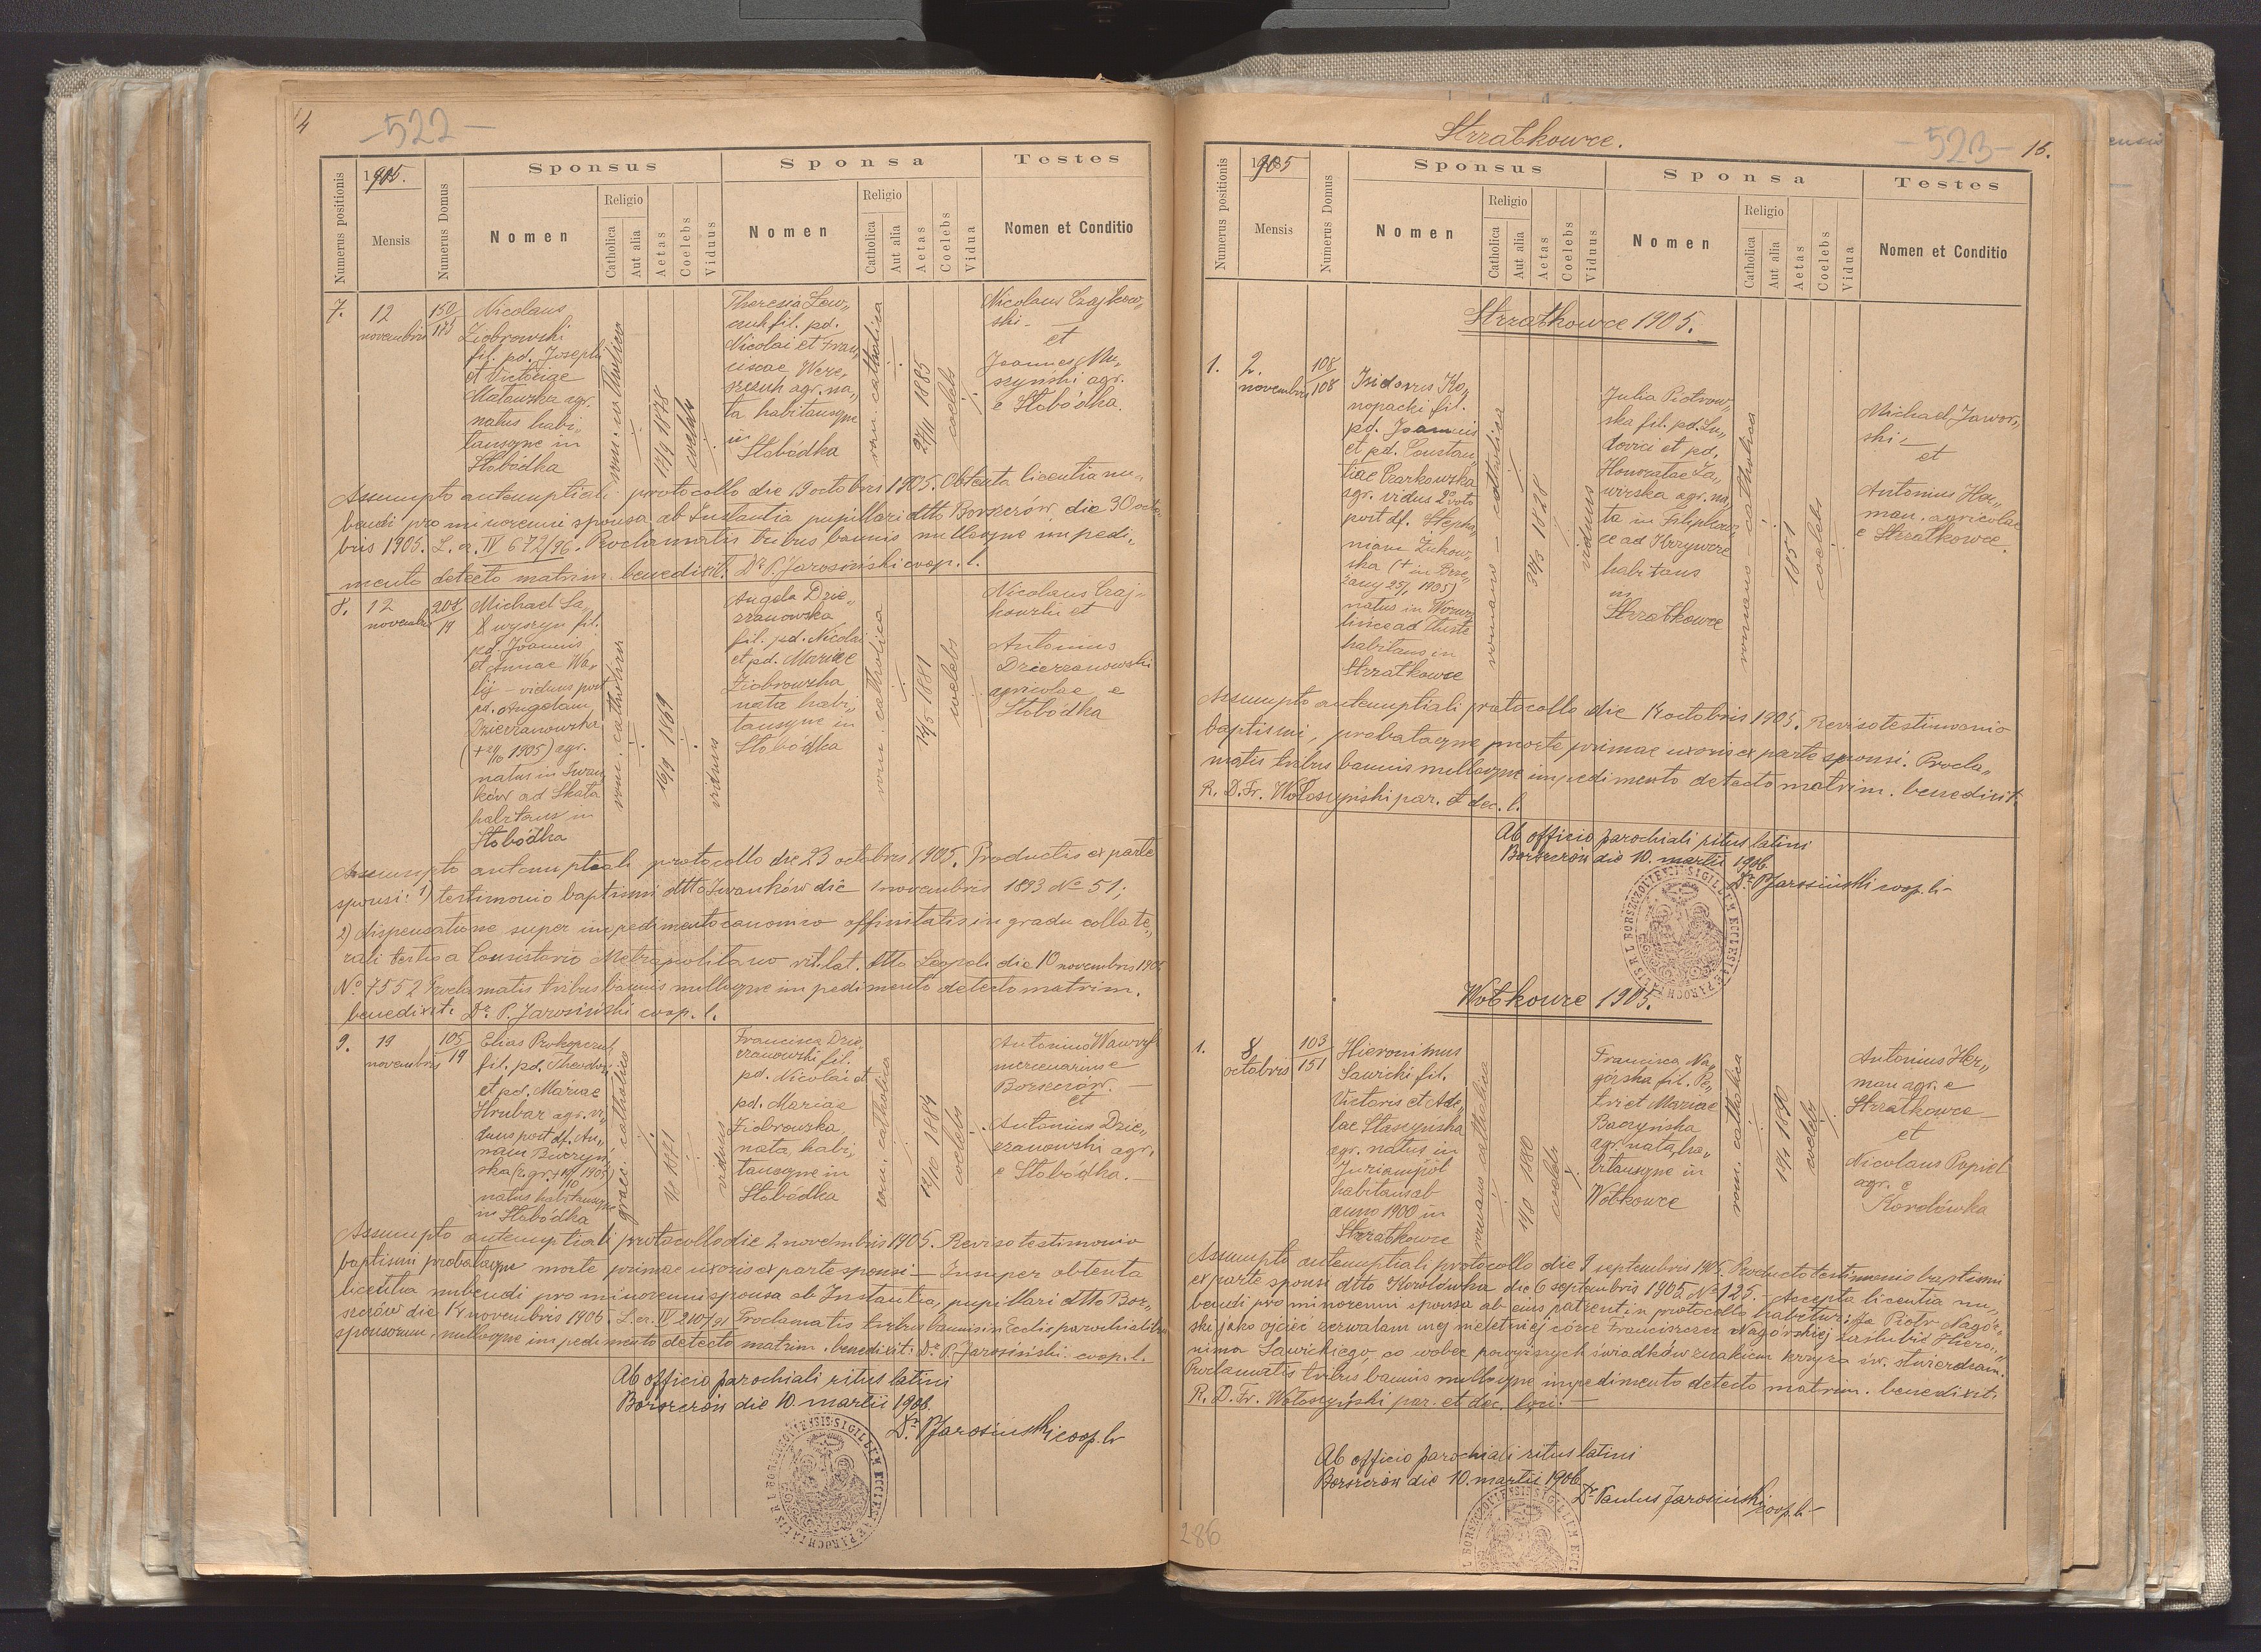 4
-522-
Sponsus
Sponsa
Testes
Numerus positionis
1905.
Mensis
Numerus Domus
Nomen
Religio
Catholica
Aut alia
Aetas
Coelebs
Viduus
Nomen
Religio
Catholica
Aut alia
Aetas
Coelebs
Vidua
Nomen et Conditio
7.
12
novembris
150
185
Nicolaus
Ziobrowski
fil. pd. Josephi
et Victoriae
Matawska agr.
natus habi„
tansque in
Słobódka
rom. catholica
18/9 1878
coelebs
Theresia Low„
czuk fil. pd.
Nicolai et Fran„
ciscae Were„
szczuk agr. na„
ta habitansque
in
Słobódka
rom. catholica
27/11 1885
coelebs
Nicolaus Czajkow„
ski —
et
Joannes Mu„
szyński agr.
e Słobódka.
Assumpto antenuptiali protocollo die 19 octobris 1905. Obtenta licentia nu„
bendi pro minorenni sponsa ab Instantia pupillari dtto Borszczów die 30 octo„
bris 1905. L. cz. IV 672/96. Proclamatis tribus bannis nulloque impedi„
mento detecto matrim. benedixit. Dr. P. Jarosiński coop. l.
8.
12
novembris
208
19
Michael Sa„
kwyszyn fil.
pd. Joannis
et Annae Wa„
lij – viduus post
pd. Angelam
Dzierzanowska
1905) agr.
natus in Iwan„
ków ad Skała
habitans in
Słobódka
rom. catholica
16/9 1869
viduus
Angela Dzie„
rzanowska
fil. pd. Nicolai
et pd. Mariae
Ziobrowska
nata habi„
tansque in
Słobódka
rom. catholica
14/5 1881
coelebs
Nicolaus Czaj„
kowski et
Antonius
Dzierzanowski
agricolae e
Słobódka
Assumpto antenuptiali protocollo die 23 octobris 1905. Productis ex parte
sponsi: 1) testimonio baptismi dtto Iwanków die 1 novembris 1893 No 51;
2) dispensatione super impedimento canonico affinitatis in gradu collate„
rali tertio a Consistorio Metropolitano rit. lat. dtto Leopoli die 10 novembris 1905
No 7552 Proclamatis tribus bannis nulloque impedimento detecto matrim.
benedixit. Dr. P. Jarosiński coop. l.
9.
19
novembris
105
19
Elias Prokopczuk
fil. pd. Theodori
et pd. Mariae
Hrubar agr. vi„
duus post df. An„
nam Buczyń„
ska
natus habitansque
in Słobódka
graec. catholica
1881
viduus
Francisca Dzie„
rzanowski fil.
pd. Nicolai et
pd. Mariae
Ziobrowska,
nata, habi„
tansque in
Słobódka
rom. catholica
12/10 1884
coelebs
Antonius Wawryk
mercenarius e
Borszczów. —
et
Antonius Dzie„
rzanowski agr.
e Słobódka. —
Assumpto antenuptiali protocollo die 2 novembris 1905. Reviso testimonio
baptismi probataque morte primae uxoris ex parte sponsi — Insuper obtenta
licentia nubendi pro minorenni sponsa ab Instantia, pupillari dtto Bor„
szczów die 14 novembris 1905. L. cz. IV 210/91 Proclamatis tribus bannis in Eccliis parochialibus
sponsorum, nulloque impedimento detecto matrim. benedixit. Dr. P. Jarosiński coop. l.
Ab officio parochiali ritus latini
Borszczów die 10. martii 1906.
Dr. PJarosiński coop. lr
Strzałkowce.
-523-
15.
Sponsus
Sponsa
Testes
Numerus positionis
1905
Mensis
Numerus Domus
Nomen
Religio
Catholica
Aut alia
Aetas
Coelebs
Viduus
Nomen
Religio
Catholica
Aut alia
Aetas
Coelebs
Vidua
Nomen et Conditio
Strzałkowce 1905.
1.
2.
novembris
108
108
Isidorus Ko„
nopacki fil.
pd. Joannis
et pd. Constan„
tiae Czarkowska
agr. vidus 2o voto
post df. Stepha„
niam Żukow„
ska (+ in Brze„
żany 25/1 1905)
natus in Worwo„
lińce ad Tłuste
habitans in
Strzałkowce
romano – catholica
30/3 1828
viduus
Julia Piotrow„
ska fil. pd. Lu„
dovici et pd.
Honoratae Ja„
worska agr. na„
ta in Filipkow„
ce ad Krzywcze
habitans
in
Strzałkowce
romano – catholica
1851
coelebs
Michael Jawor„
ski —
et
Antonius Her„
man. agricolae
e Strzałkowce.
Assumpto antenuptiali protocollo die 14 octobris 1905. Reviso testimonio
baptismi, probataque morte primae uxoris ex parte sponsi. Procla„
matis tribus bannis nulloque impedimento detecto matrim. benedixit.
R. D. Fr. Wołoszyński par. et dec. l.
Ab officio parochiali ritus latini
Borszczów die 10. martii 1906
Dr. PJarosiński coop. lr
Wołkowce 1905.
1.
8
octobris
103
151
Hieronimus
Sawicki fil.
Victoris et Ade„
lae Staszyńska
agr. natus in
Juriampol
habitans ab
anno 1900 in
Strzałkowce
romano catholica
1880
coelebs
Francisca Na„
górska fil. Pe„
tri et Mariae
Baczyńska
agr. nata, ha„
bitansque in
Wołkowce
rom. catholica
coelebs
Antonius Her„
man agr. e
Strzałkowce —
et
Nicolaus Popiel
agr. e
Korolówka
Assumpto antenuptiali protocollo die 9 septembris 1905. Producto testimonio baptismi
ex parte sponsi dtto Korolówka die 6 septembris 1905 No 125. – Accepta licentia nu„
bendi pro minorenni sponsa ab eius patre ut in protocollo habetur: Ja Piotr Nagór„
ski jako ojciec zezwalam mej nieletniej córce Franciszce Nagórskiej zaślubić Hiero„
nima Sawickiego, co wobec powyższych świadków znakiem krzyża św. stwierdzam.
Proclamatis tribus bannis nulloque impedimento detecto matrim. benedixit.
R. D. Fr. Wołoszyński par. et dec. —
Ab officio parochiali ritus latini
Borszczów die 10. martii 1906
Dr. Paulus Jarosiński coop. lr
286